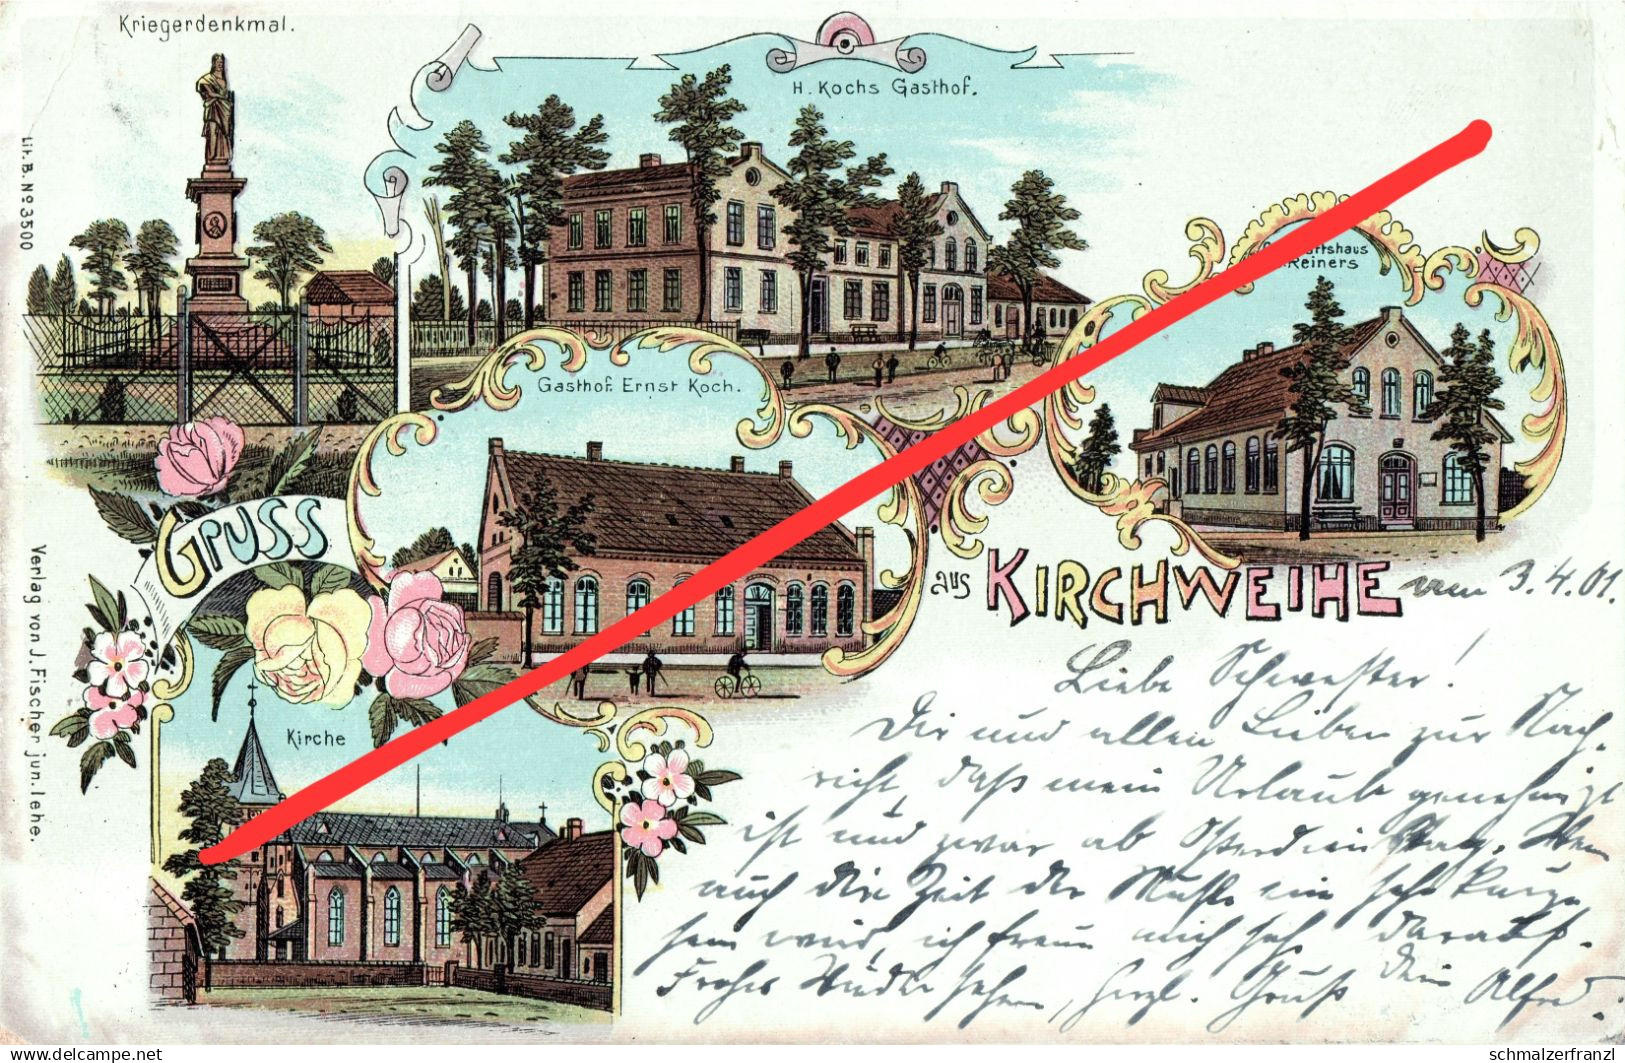 Kriegerdenkmal.
H. Kochs Gasthof.
Lit. B. No 3500
Reiners
Gasthof Ernst Koch.
Gruss
aus KIRCHWEIHE vom 3.4.01.
Kirche
Verlag von J. Fischer jun. lehe.
Liebe Schwester!
Dir und allen Lieben zur Nach-
richt, daß mein Urlaub genehmigt
ist und zwar ab Osterdienstag. Wenn
auch die Zeit der Muße ein sehr kurze
sein wird, ich freue mich sehr darauf.
Frohes Wiedersehen, Herzl. Gruß Dein Alfred.
© delcampe.net
schmalzerfranzl